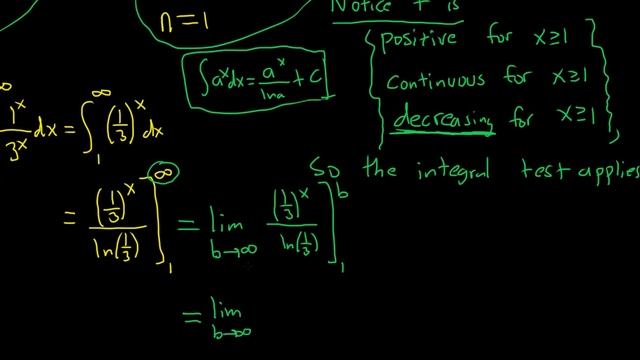 Notice f is
n=1
{positive for x≥1
continuous for x≥1
decreasing for x≥1}
∫a^x dx = a^x/ln a + C
∞ 1^x/3^x dx = ∫_1^∞ (1/3)^x dx
So the integral test applies
= (1/3)^x/ln(1/3)]_1^∞ = lim_{b→∞} (1/3)^x/ln(1/3)]_1^b
= lim_{b→∞}